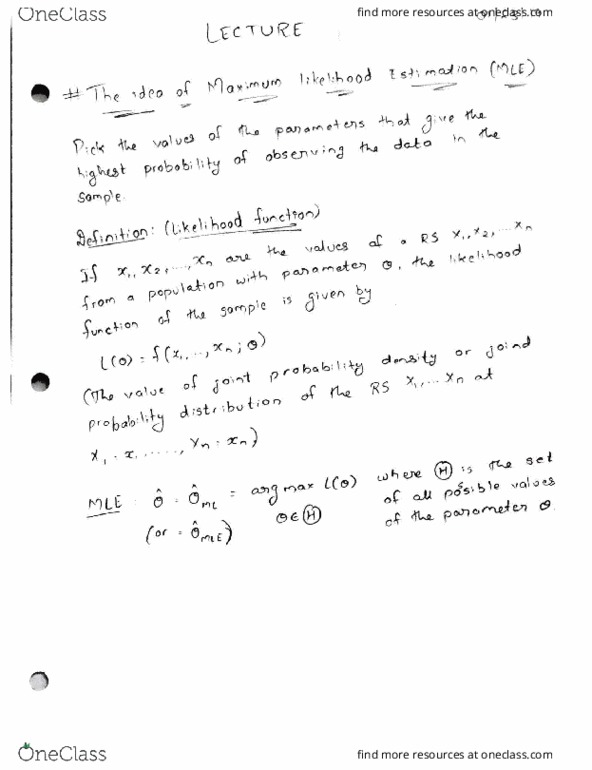 OneClass
find more resources at oneclass.com
LECTURE
# The idea of Maximum likelihood Estimation (MLE)
Pick the values of the parameters that give the
highest probability of observing the data in the
sample.
Definition: (Likelihood function)
If x₁, x₂, ..., xₙ are the values of a RS X₁, X₂, ... Xₙ
from a population with parameter θ, the likelihood
function of the sample is given by
L(θ) = f(x₁, .., xₙ; θ)
(The value of joint probability density or joind
probability distribution of the RS X₁, ... Xₙ at
X₁ = x₁ ......, Xₙ = xₙ)
MLE : θ̂ = θ̂ML = arg max L(θ) where Ⓗ is the set
θ ∈ Ⓗ of all possible values
(or = θ̂MLE) of the parameter θ.
OneClass
find more resources at oneclass.com